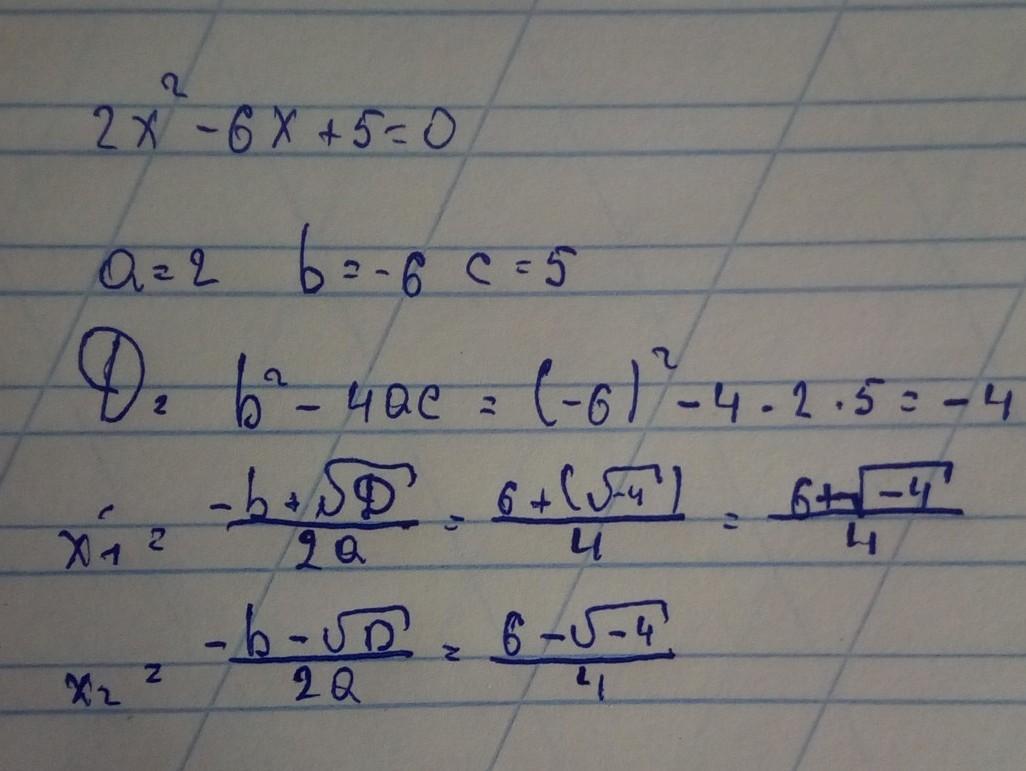 2x² - 6x + 5 = 0
a = 2 b = -6 c = 5
D = b² - 4ac = (-6)² - 4 · 2 · 5 = -4
x₁ = (-b + √D)/(2a) = (6 + (√-4))/4 = (6 + √-4)/4
x₂ = (-b - √D)/(2a) = (6 - √-4)/4